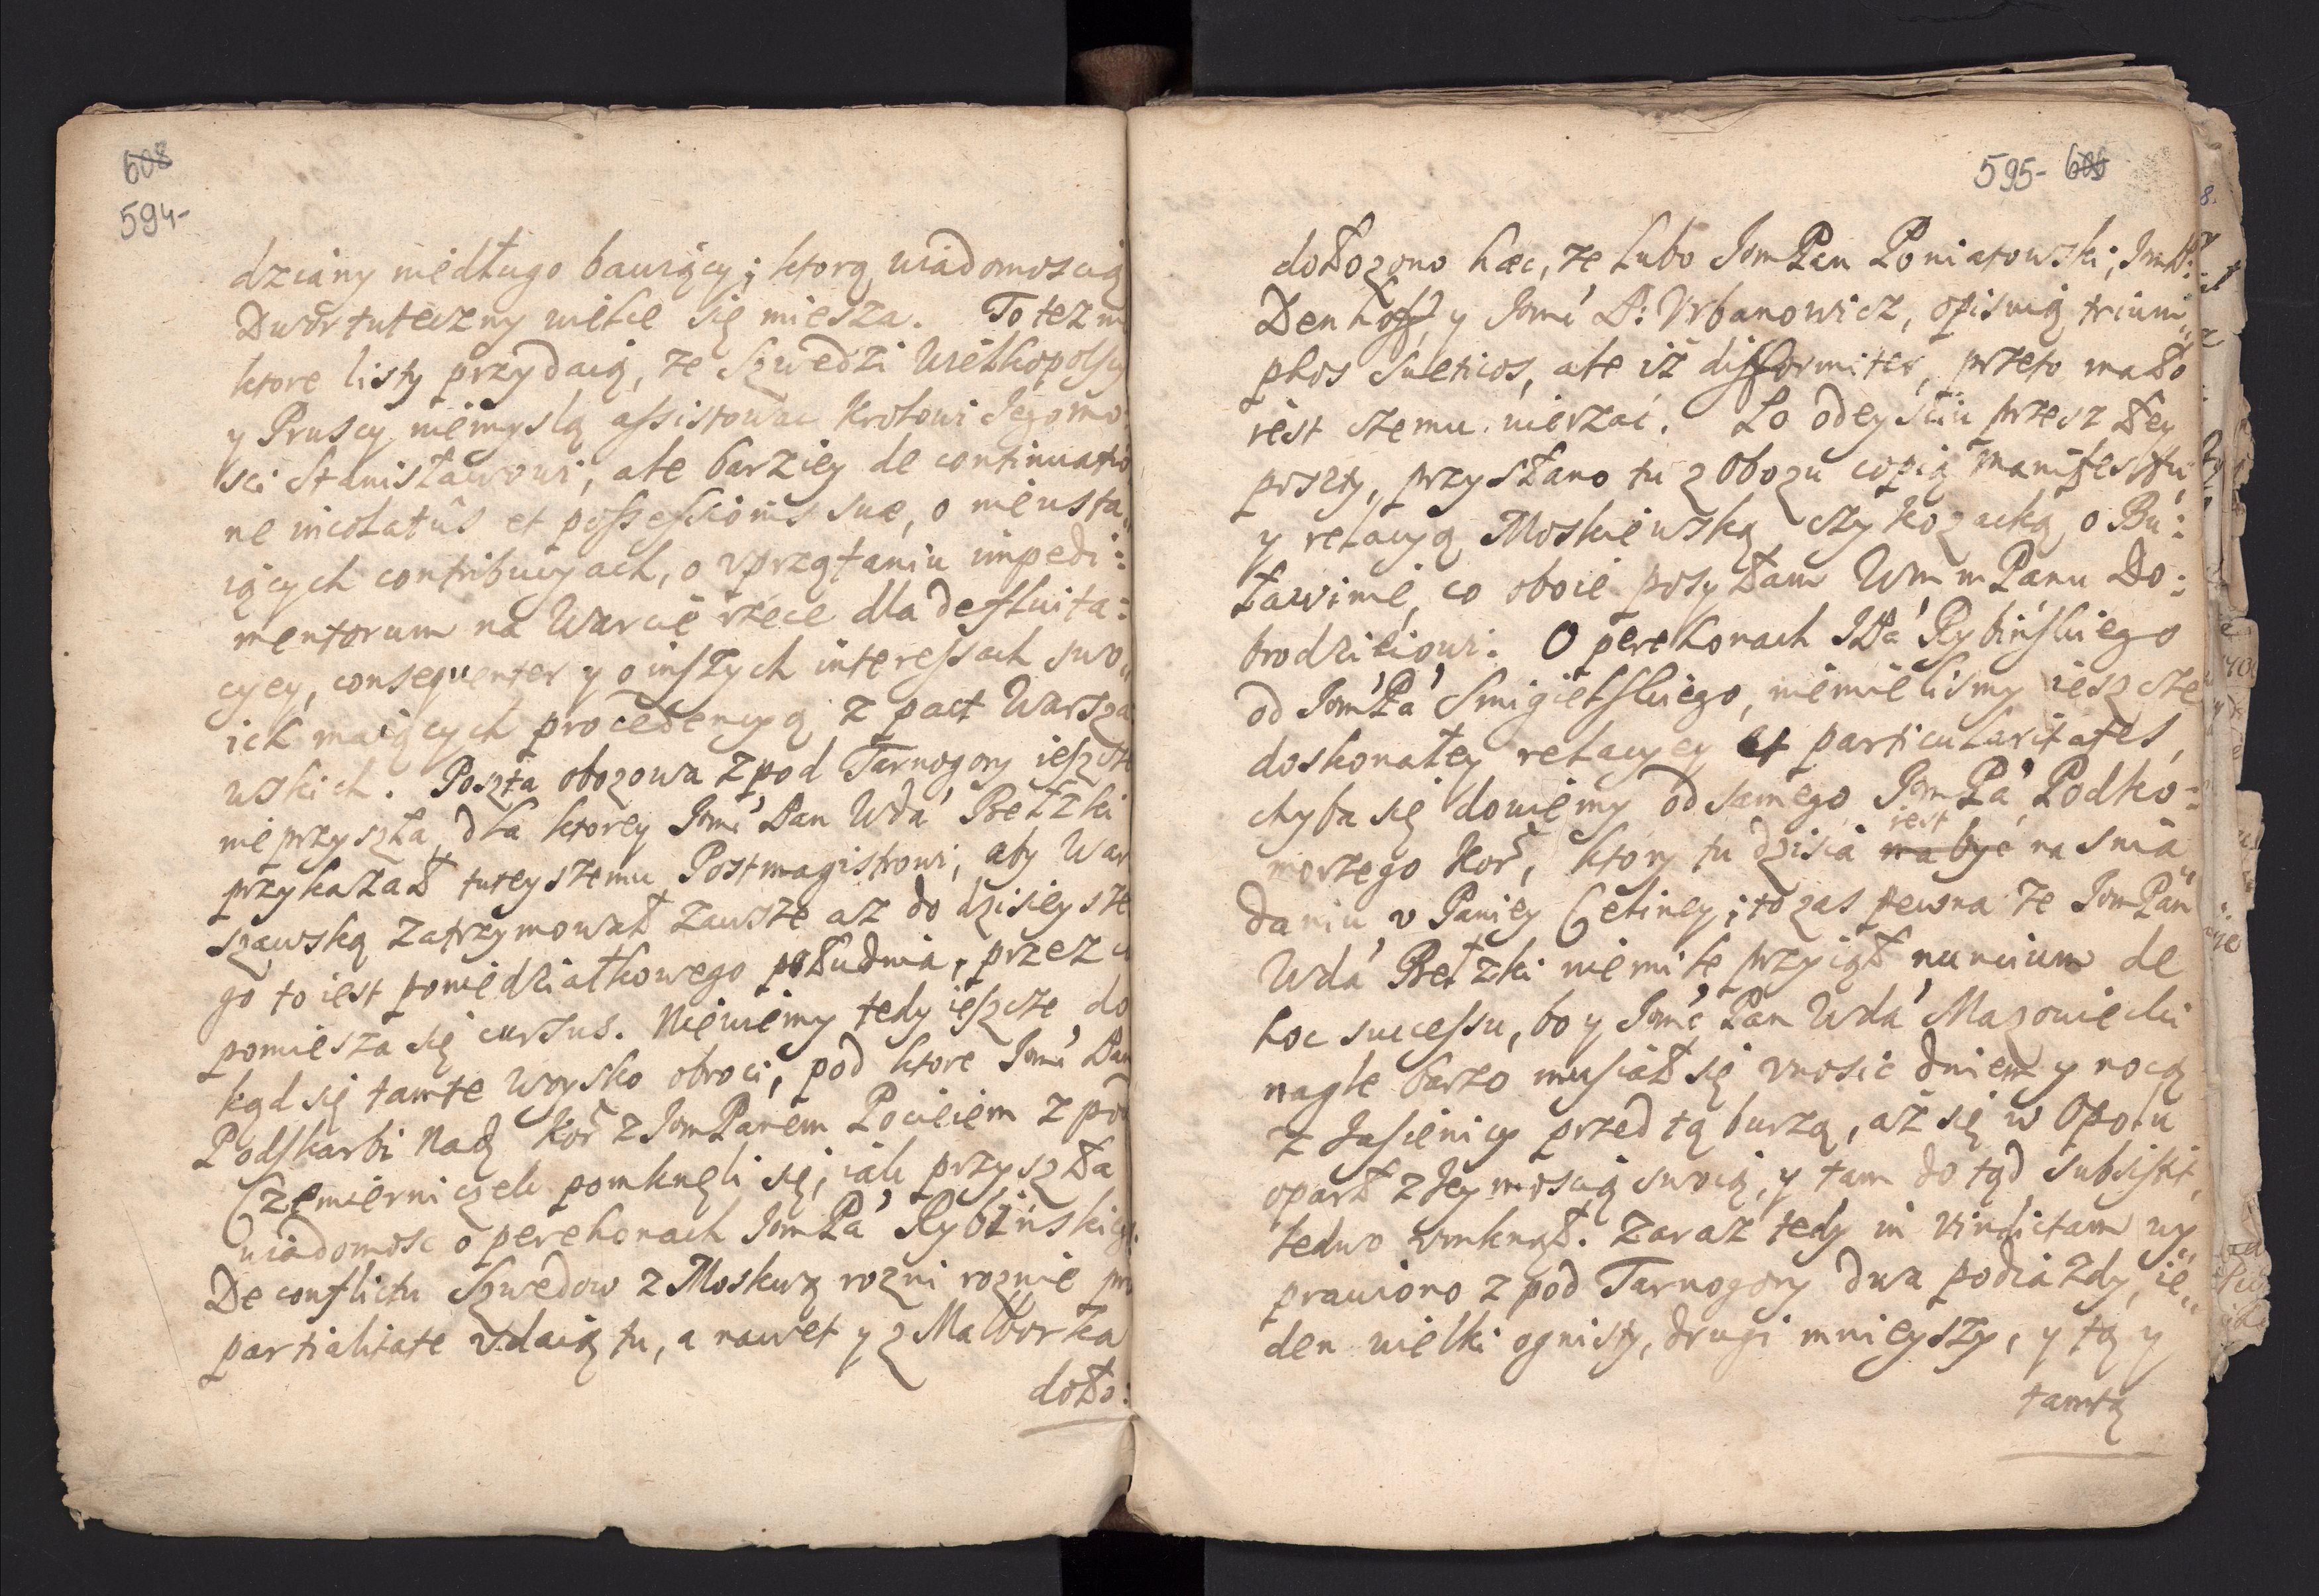 608
594-
dziany niedługo bawiący; ktorą wiadomoscią
Dwor tuteczny wielce się miesza. To tez nie
ktore listy przydaią, ze Szwedzi Wielkopolscy
y Pruscy niemyslą assistowac Krolowi Jegomo
sci Stanisławowi, ale barziey de continuatio
ne incolatûs et possessionis suæ, o nieusta„
iących contribucyach, o vprzątaniu impedi:
mentorum na Warcie rzece dla deffluita:
cyey, consequenter y o inszych interessach swo„
ich maiących procedencyą z pact Warsza
wskich. Poszta obozowa z pod Tarnogory ieszcze
nie przyszła, dla ktorey Jomć Pan Wdá Bełzki
przykazał tuteyszemu Postmagistrowi, aby War
szawską zatrzymował zawsze az do dzisieysze
go to iest poniedziałkowego południa, przez c
pomiesza się cursus. Niewiemy tedy ieszcze do
kąd się tamte woysko obroci, pod ktore Jomć Pan
Podskarbi Nadₓ Kor̃ z Jom Panem Pocieiem z pod
Czemierniczek pomknęli się, iak przyszła
wiadomosc o perehonach Jom Pá Rybińskieg
De conflictu Szwedow z Moskwą rozni roznie pro
partialitate vdaią tu, a nawet y z Malborka
doło:
595- 609
dołozono hæc, ze lubo Jom Pan Poniatowski, Jm P:
Denhoff, y Jomć P: Vrbanowicz, opisuią trium„
phos Sueticos, ale iż difformiter, przeto mało
iest czemu wierzać. Po odeysciu przeszłey
poszty, przysłano tu z Obozu copią Manifestu,
y relacyą Moskiewską czy Kozacką o Bu:
ławinie, co oboie posyłam Wm m Panu Do:
brodzieiowi. O perehonach JPá Rybińskiego
od Jom Pá Smigielskiego, niemielismy ieszcze
doskonałey relacyey et particularitates,
chyba się dowiemy od samego Jom Pá Podko:
morzego Kor̃, ktory tu dzisia ma być iest na snia„
daniu v Paniey Cetiney; to zas pewna ze Jom Pan
Wdá Bełzki niemile przyiął nuncium de
hoc successu, bo y Jomć Pan Wdá Mazowiecki
nagle barzo musiał się vnosic dniem y nocą
z Jasienicy przed tą burzą, aż się w Opolu
oparł z Jeymoscią swoią, y tam do tąd subsistit,
ledwo vmknął. Zaraz tedy in vindictam wy„
prawiono z pod Tarnogory dwa podiazdy, ie„
den wielki ognisty, drugi mnieyszy, y tą y
tamtą